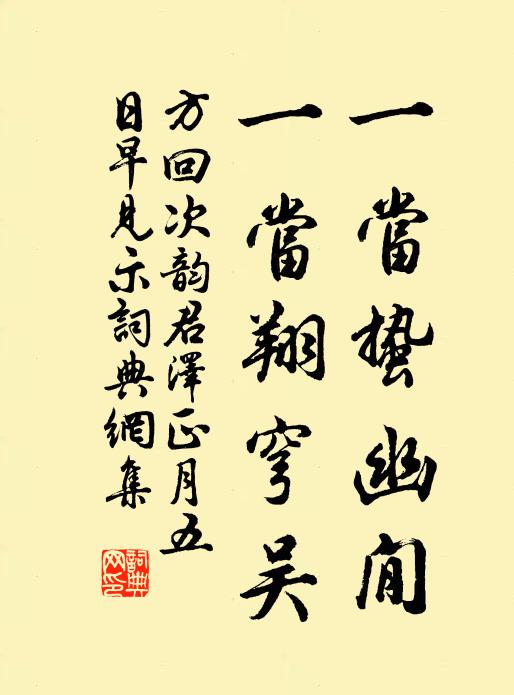 一當蟄幽閒
一當翔穹吴
方回次韵君澤正月五
日早見示詞典網集
詞典网印